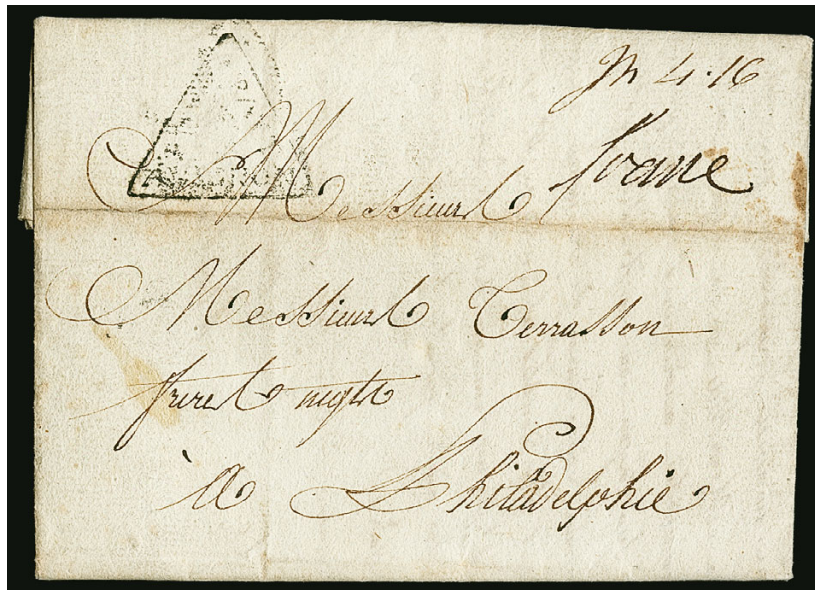 4.16
franc
Messieurs
Messieurs Terrasson
freres negts
à Philadelphie